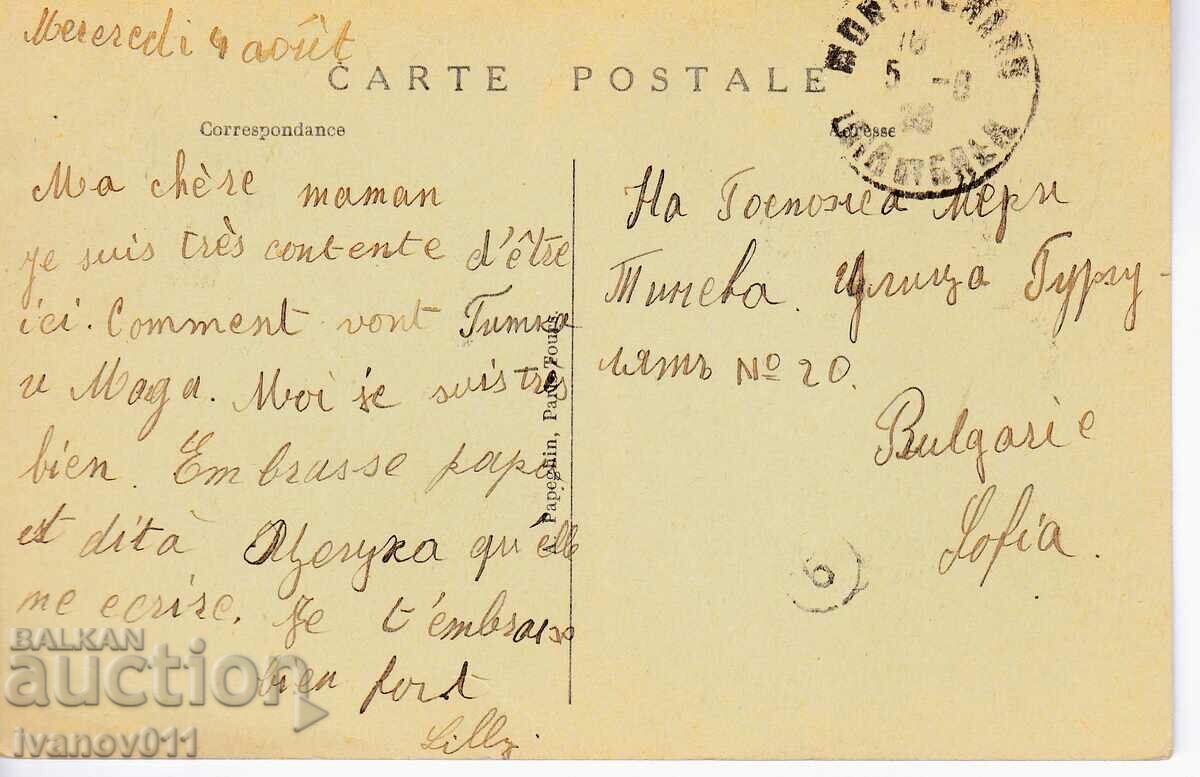 Mercredi 4 août
CARTE POSTALE
Correspondance
Ma chère maman
je suis très contente d'être
ici. Comment vont Гитка
и Мада. Moi je suis très
bien. Embrasse papa
et dit à Цецука qu'elle
me ecrire. Je t'embrasse
bien fort
Lilly.
Papeghin, Paris-Tours
Adresse
10
5 -8
На Госпожа Мери
Тинева. Улица Гургу-
лятъ № 20.
Bulgarie
Sofia.
6
BALKAN
auction
ivanov011